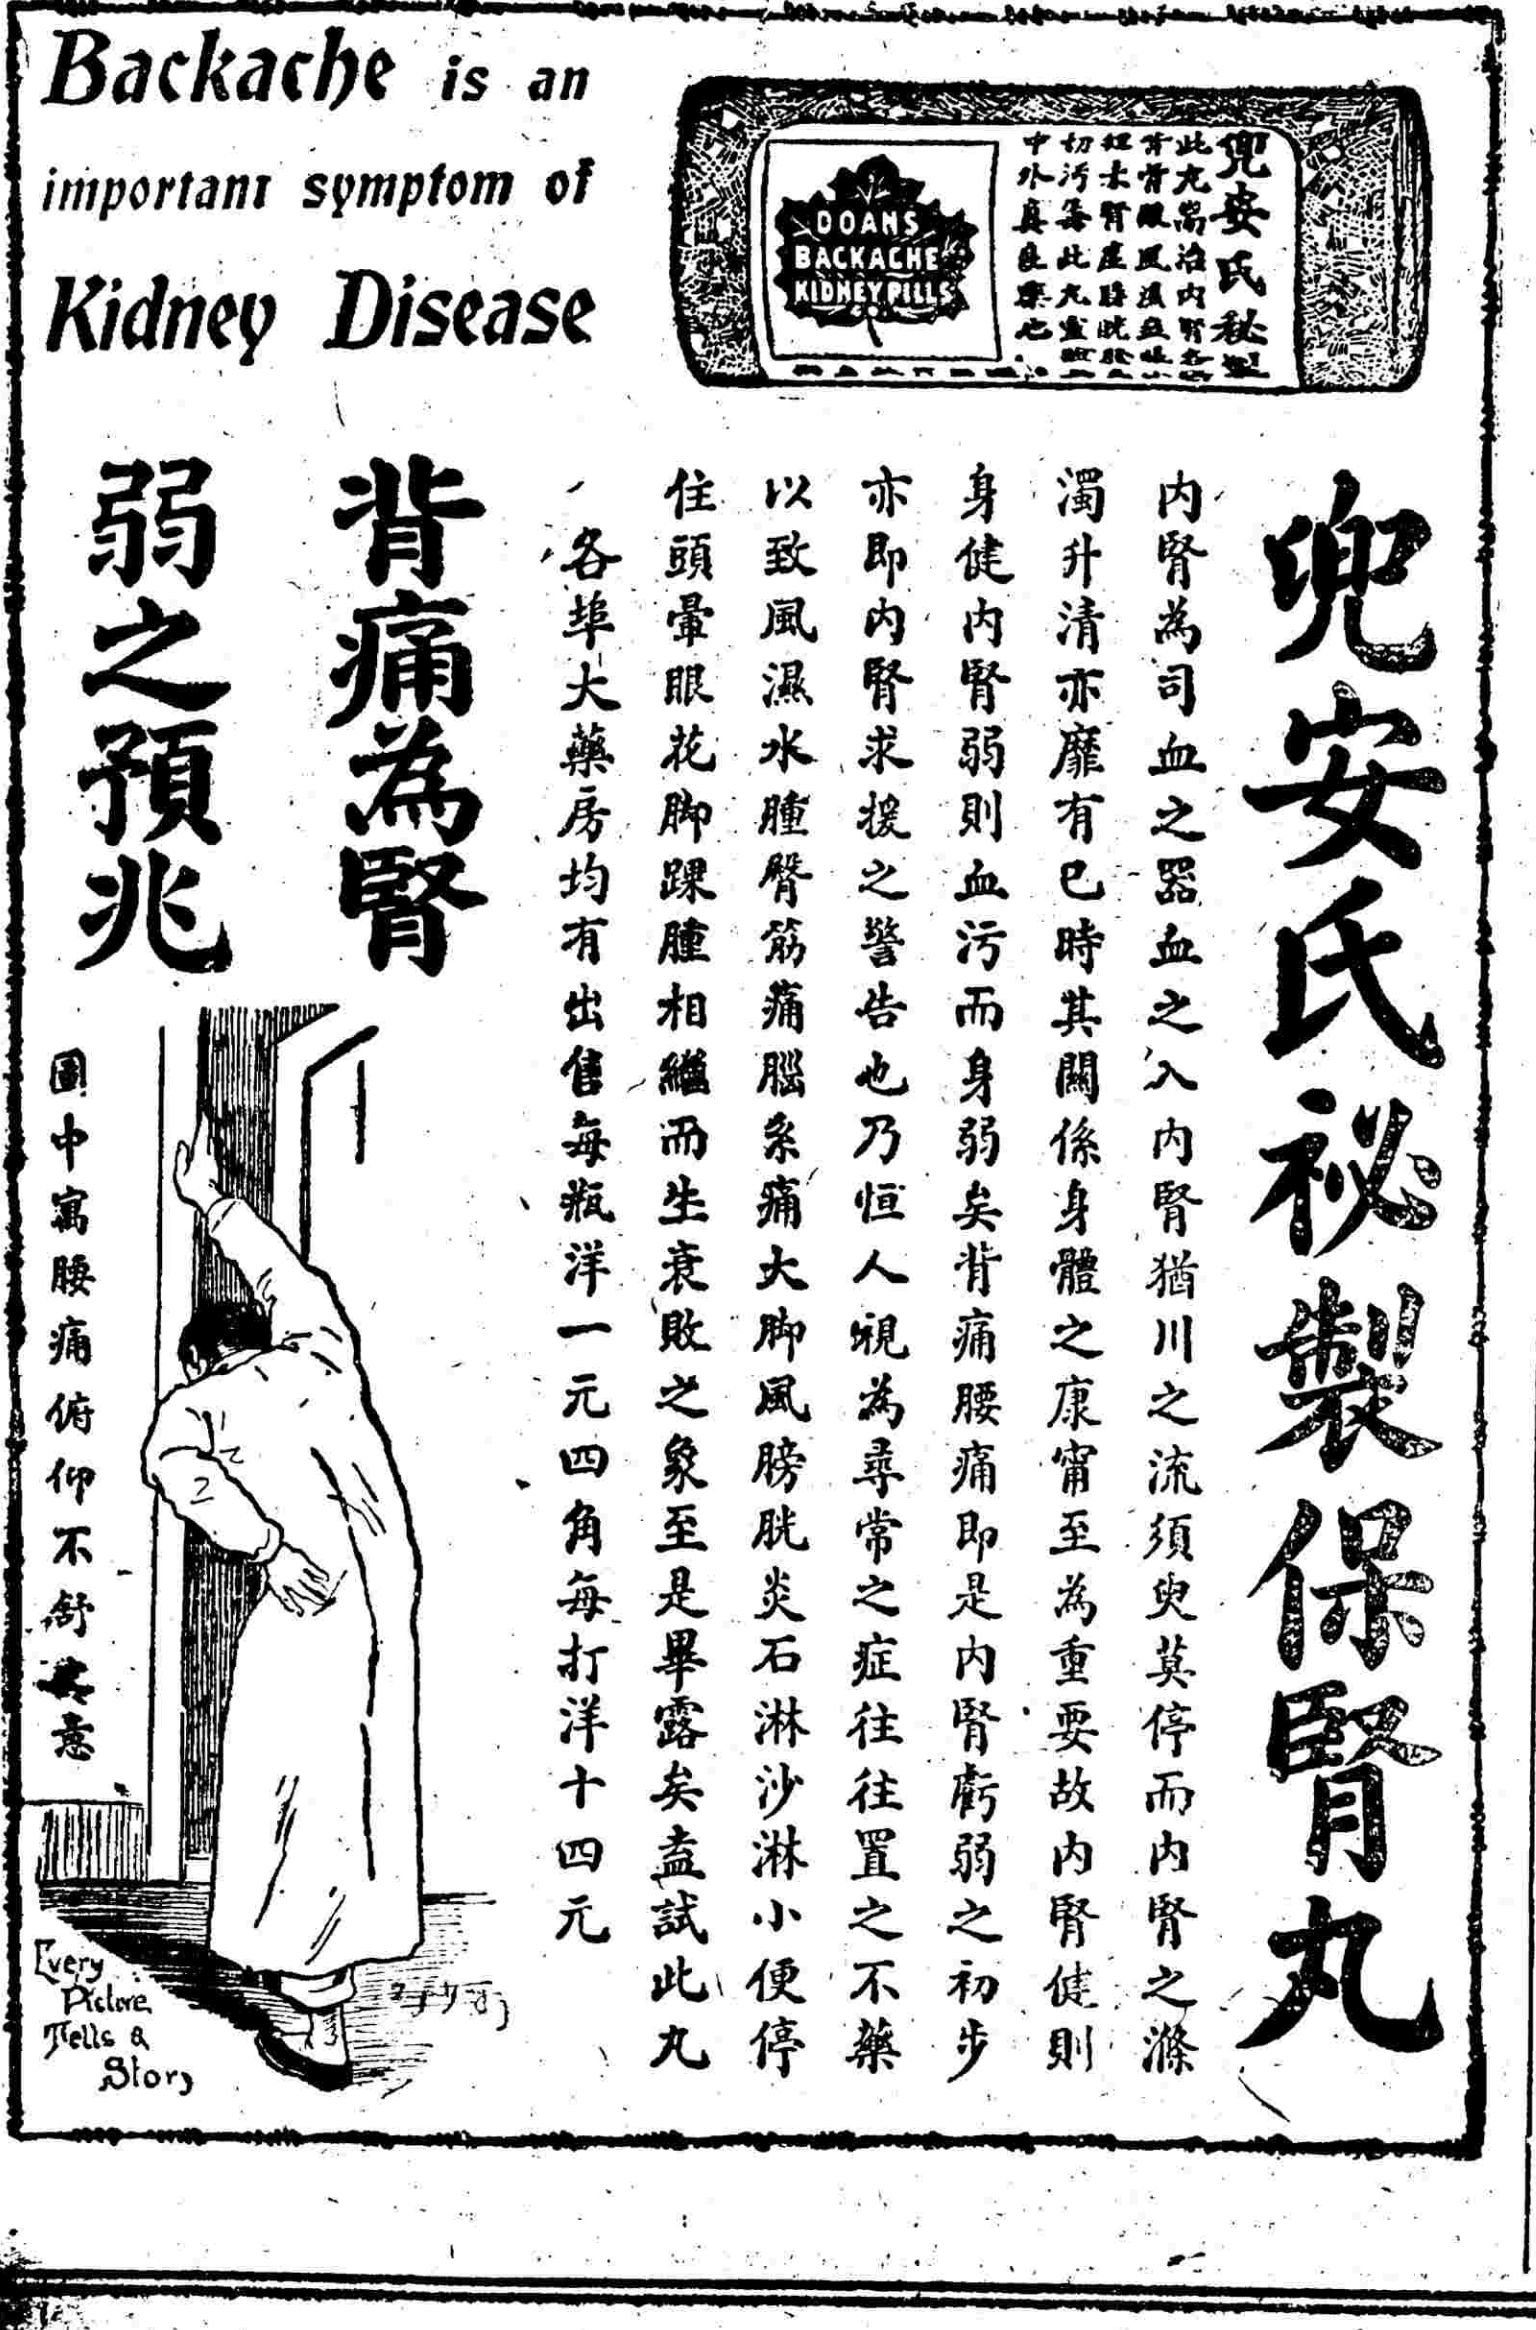 Backache is an
important symptom of
Kidney Disease
DOANS
BACKACHE
KIDNEY PILLS
兜安氏秘製
中外真良藥也
兜安氏祕製保腎丸
內腎為司血之器血之入內腎猶川之流須臾莫停而內腎之滌
濁升清亦靡有已時其關係身體之康甯至為重要故內腎健則
身健內腎弱則血污而身弱矣背痛腰痛即是內腎虧弱之初步
亦即內腎求援之警告也乃恒人視為尋常之症往往置之不藥
以致風濕水腫臀筋痛腦系痛大脚風膀胱炎石淋沙淋小便停
住頭暈眼花脚踝腫相繼而生衰敗之象至是畢露矣盍試此丸
各埠大藥房均有出售每瓶洋一元四角每打洋十四元
背痛為腎
弱之預兆
圖中寓腰痛俯仰不舒之意
Every
Picture
Tells a
Story